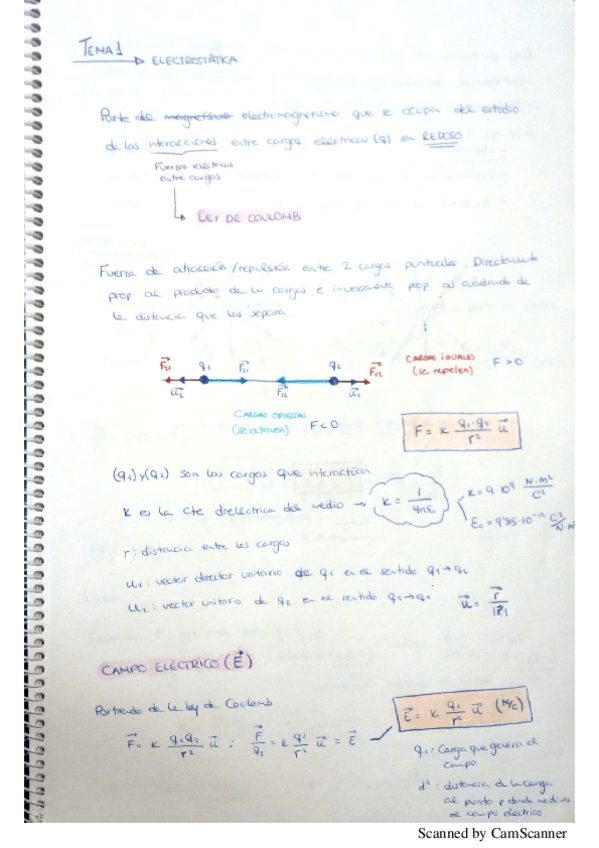 TEMA 1
ELECTROSTÁTICA
Parte del magnetismo electromagnetismo que se ocupa del estudio
de las interacciones entre cargas eléctricas (q) en REPOSO
Fuerzas eléctricas
entre cargas
LEY DE COULOMB
Fuerza de atracción/repulsión entre 2 cargas puntuales. Directamente
prop al producto de las cargas e inversamente prop. al cuadrado de
la distancia que las separa.
F⃗₂₁ q₁ F⃗₂₁ q₂ F⃗₁₂ CARGAS IGUALES F>0
(se repelen)
u⃗₂ F⃗₁₂ u⃗₁
CARGAS OPUESTAS
(se atraen) F<0
F = K q₁·q₂/r² u⃗
(q₁) y (q₂) son las cargas que interactúan
K es la cte dieléctrica del medio → K = 1/4πε₀
K = 9·10⁹ N·m²/C²
ε₀ = 8'85·10⁻¹² C²/N m²
r: distancia entre las cargas
u₁: vector director unitario de q₁ en el sentido q₁→q₂
u₂: vector unitario de q₂ en el sentido q₂→q₁ u⃗ = r⃗/|r⃗|
CAMPO ELÉCTRICO (E⃗)
Partiendo de la ley de Coulomb
F⃗ = K q₁q₂/r² u⃗ ; F⃗/q₂ = K q₁/r² u⃗ = E⃗
E⃗ = K q₁/r² u⃗ (N/C)
q₁: Carga que genera el
campo
d²: distancia de la carga
al punto p donde medimos
el campo eléctrico
Scanned by CamScanner